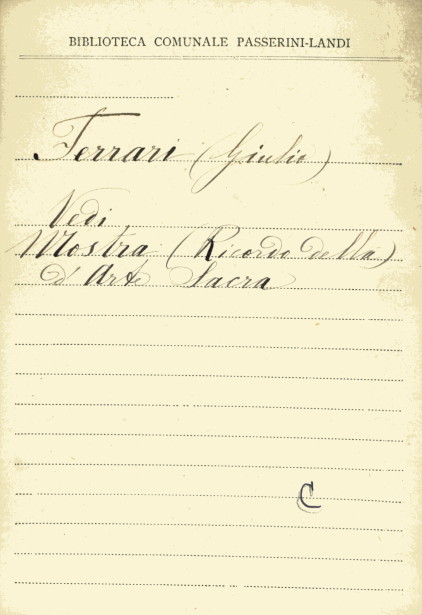 BIBLIOTECA COMUNALE PASSERINI-LANDI
Ferrari (Giulio)
Vedi
Mostra (Ricordo della)
d'Arte Sacra
C